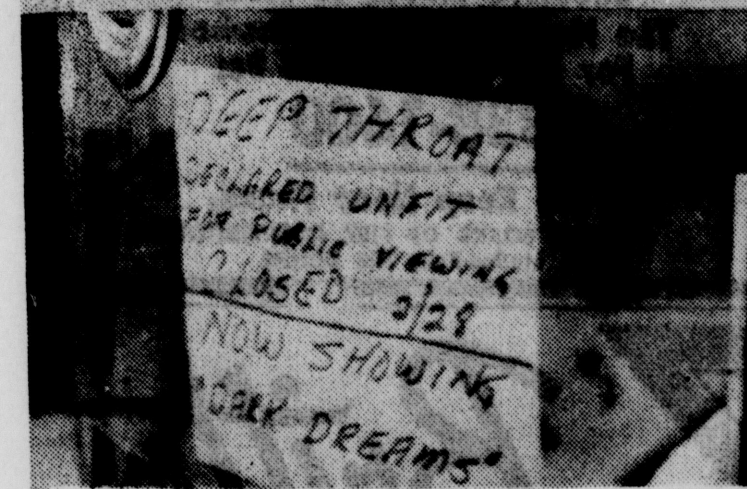 DEEP THROAT
DECLARED UNFIT
FOR PUBLIC VIEWING
CLOSED 2/28
NOW SHOWING
"DARK DREAMS"